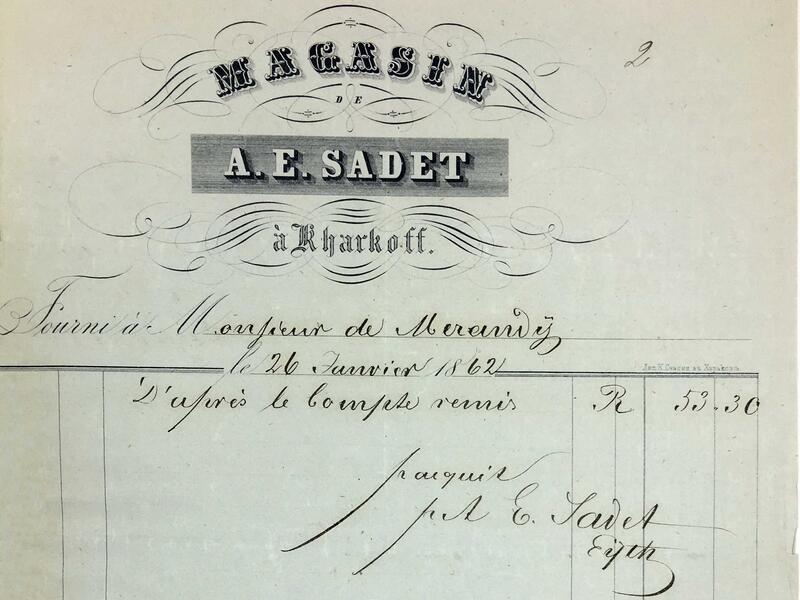 2
MAGASIN
DE
A. E. SADET
à Kharkoff.
Fourni à Monsieur de Merandÿ
le 26 Janvier 1862
D'après le Compte remis R 53.30
pacquit
p A E. Sadet
Eyth